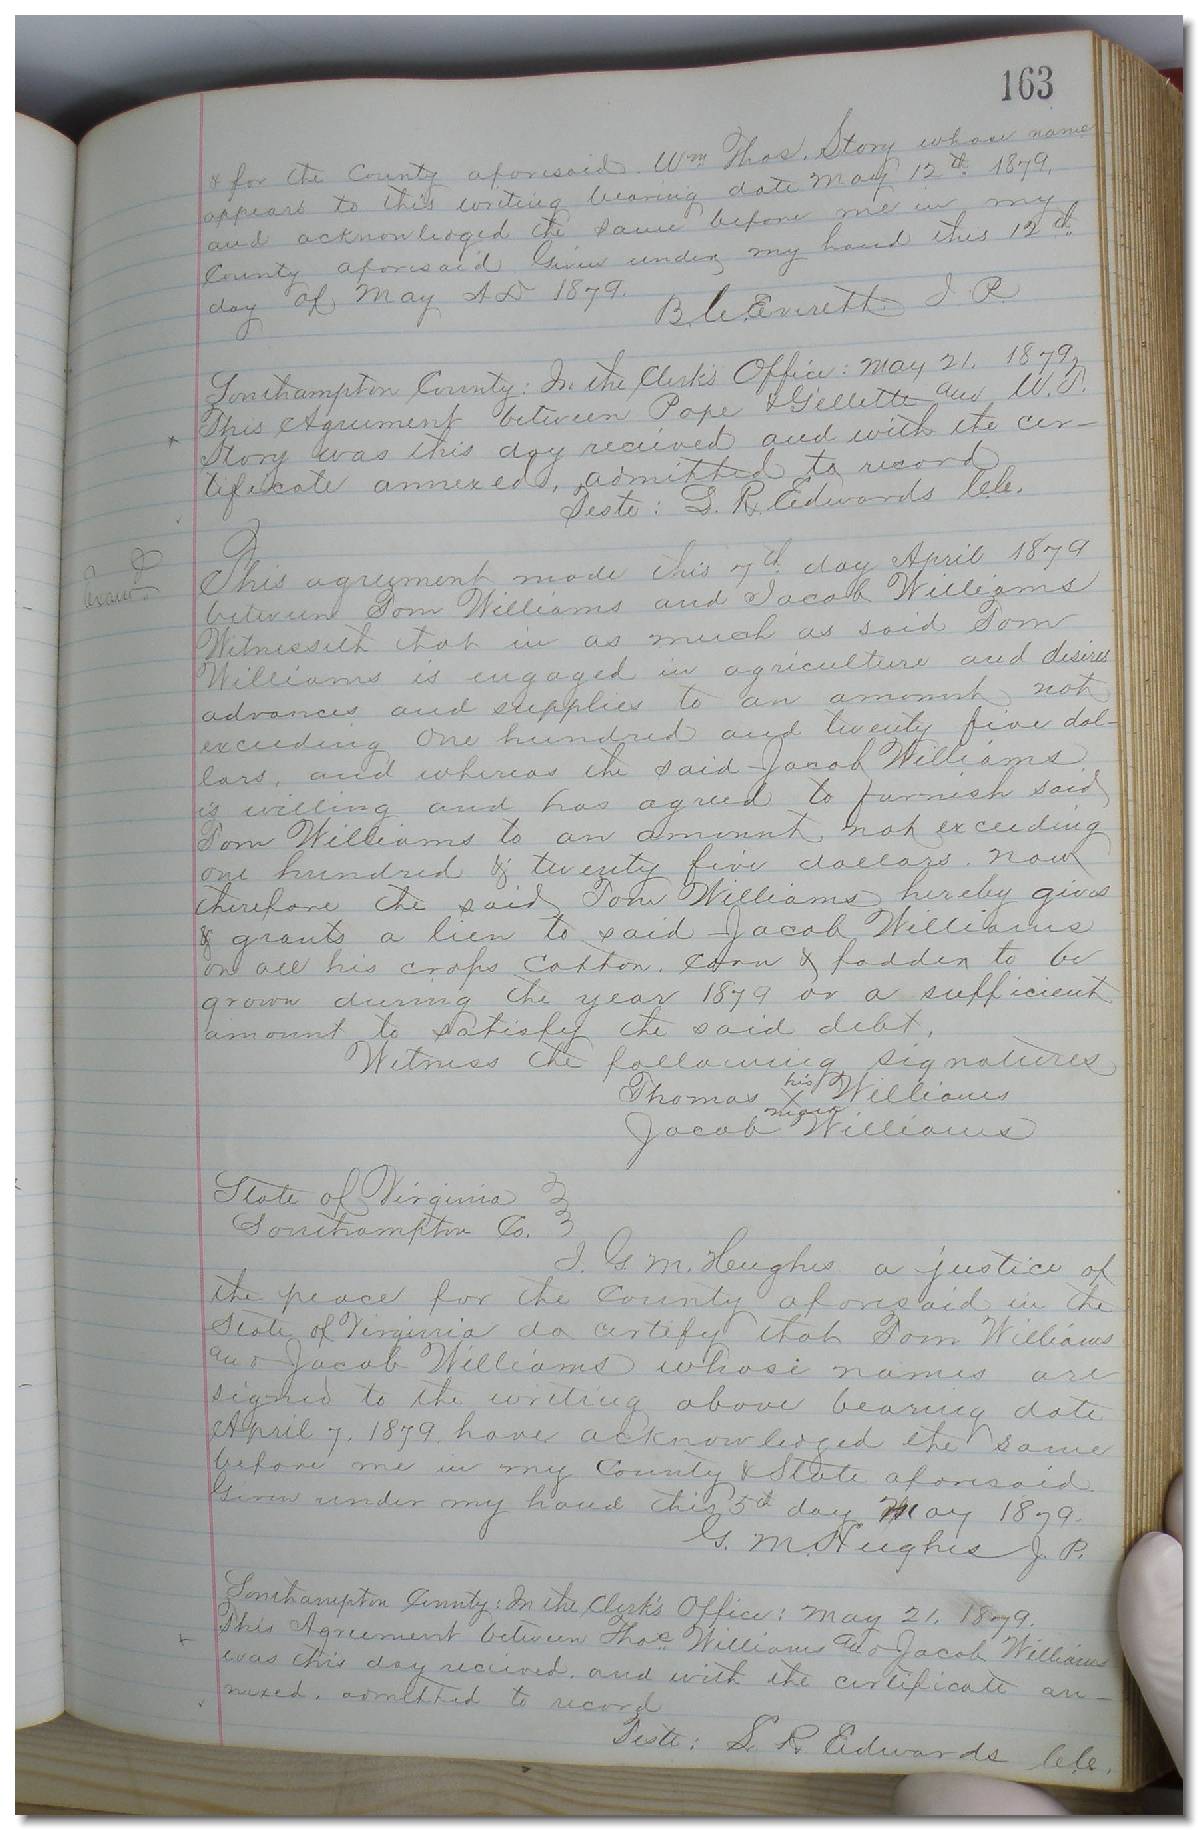 163
& for the County aforesaid. Wm Thos. Story whose name
appears to this writing bearing date May 12th 1879,
and acknowledged the same before me in my
County aforesaid Given under my hand this 12th
day of May AD 1879.
B. C. Everett J. P.
Southampton County: In the Clerk's Office: May 21. 1879,
This Agreement between Pope & Gillette and W. T.
Story was this day recieved and with the cer-
tificate annexed, admitted to record
Teste: L. R. Edwards C.C.
This agreement made this 7th day April 1879
between Tom Williams and Jacob Williams
Witnesseth that in as much as said Tom
Williams is engaged in agriculture and desires
advances and supplies to an amount not
exceeding One hundred and twenty five dol-
lars, and whereas the said Jacob Williams
is willing and has agreed to furnish said
Tom Williams to an amount not exceeding
one hundred & twenty five dollars. now
therefore the said Tom Williams hereby gives
& grants a lien to said Jacob Williams
on all his crops Cotton. Corn & fodder to be
grown during the year 1879 or a sufficient
amount to satisfy the said debt.
Witness the following signatures
Thomas his X mark Williams
Jacob Williams
State of Virginia
Southampton Co.
I. G. M. Hughes a justice of
the peace for the County aforesaid in the
State of Virginia do certify that Tom Williams
and Jacob Williams whose names are
signed to the writing above bearing date
April 7. 1879 have acknowledged the same
before me in my County & State aforesaid.
Given under my hand this 5th day May 1879.
G. M. Hughes J. P.
Southampton County: In the Clerk's Office: May 21. 1879.
This Agreement between Thos Williams and Jacob Williams
was this day recieved. and with the certificate an-
nexed. admitted to record
Teste: L. R. Edwards C.C.